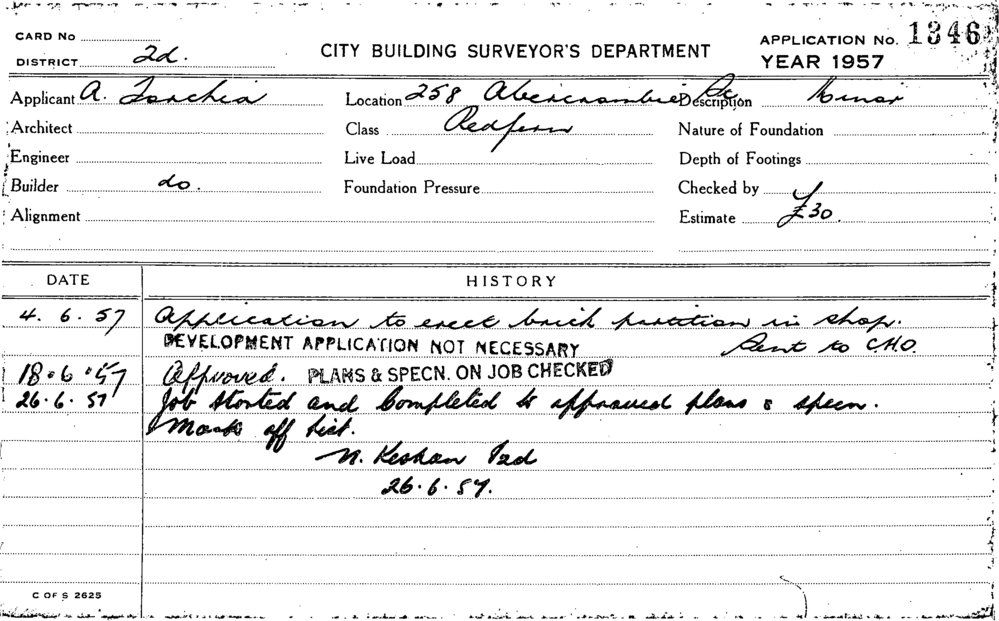 CARD No
DISTRICT 2d.
CITY BUILDING SURVEYOR'S DEPARTMENT
APPLICATION No. 1346
YEAR 1957
Applicant A. Torchia
Location 258 Abercrombie St
Description Minor
Architect
Class Redfern
Nature of Foundation
Engineer
Live Load
Depth of Footings
Builder do.
Foundation Pressure
Checked by
Alignment
Estimate £30.
DATE
HISTORY
4. 6. 57 Application to erect brick partition in shop.
DEVELOPMENT APPLICATION NOT NECESSARY Sent to C.H.O.
18.6.57 Approved. PLANS & SPECN. ON JOB CHECKED
26.6.57 Job Started and Completed to approved plans & specn.
Mark off list.
N. 
26.6.57.
C OF S 2625